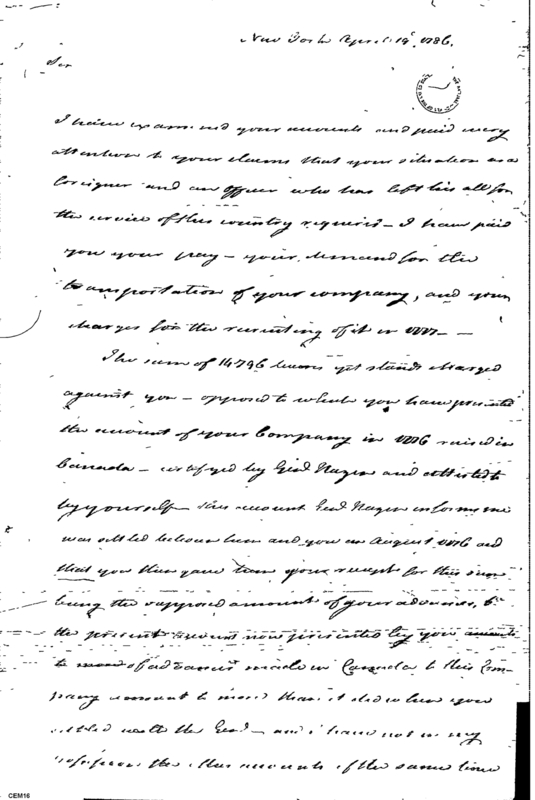 New York April 19th 1786.
Sir
I have examined your accounts and paid every
attention to your claims that your situation as a
foreigner and an officer who has left his all for
the service of this country required - I have paid
you your pay - your demand for the
transportation of your company, and your
charges for the recruiting of it in 1777. -
The sum of 14796 livres yet stands charged
against you - opposed to which you have presented
the account of your Company in 1776 raised in
Canada - certifyed by Genl Hazen and attested to
by yourself - this account Genl Hazen informs me
was settled between him and you in August 1776 and
that you then gave him your receipt for this sum
being the supposed amount of your advances,
the present account now presented by you
to of advances made in Canada to this Com-
pany amount to more than it did when you
settled with the Genl - and I have not in my
the accounts of the same time
CEM16